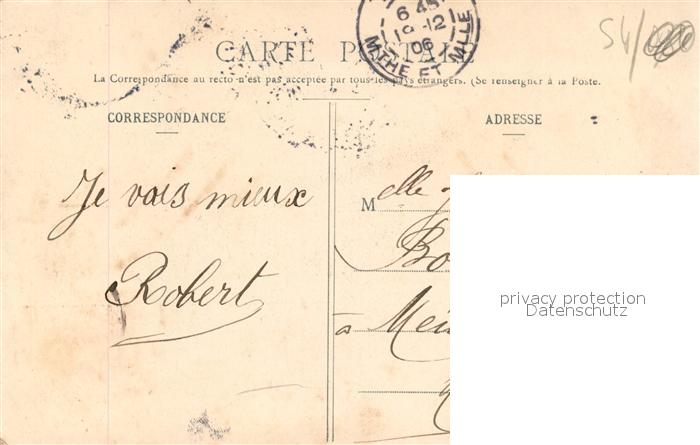 6 45
19-12
06
MTHE ET MLLE
54/
CARTE POSTALE
La Correspondance au recto n'est pas acceptée par tous les pays étrangers. (Se renseigner à la Poste.
CORRESPONDANCE
ADRESSE
Je vais mieux
Robert
M elle
Bo
à Mei
privacy protection
Datenschutz